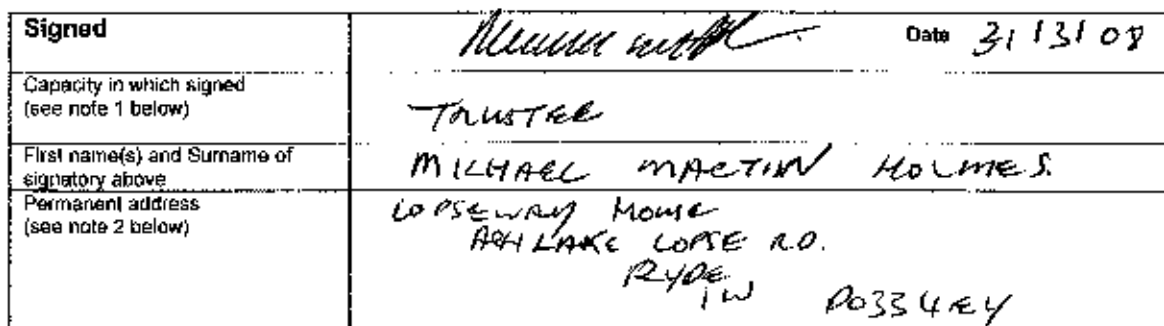 Signed Date 31/3/08
Capacity in which signed
(see note 1 below)
TRUSTEE
First name(s) and Surname of
signatory above
MICHAEL MARTIN HOLMES
Permanent address
(see note 2 below)
COPSEWAY HOUSE
ASHLAKE COPSE RD.
RYDE
IW PO33 4EY